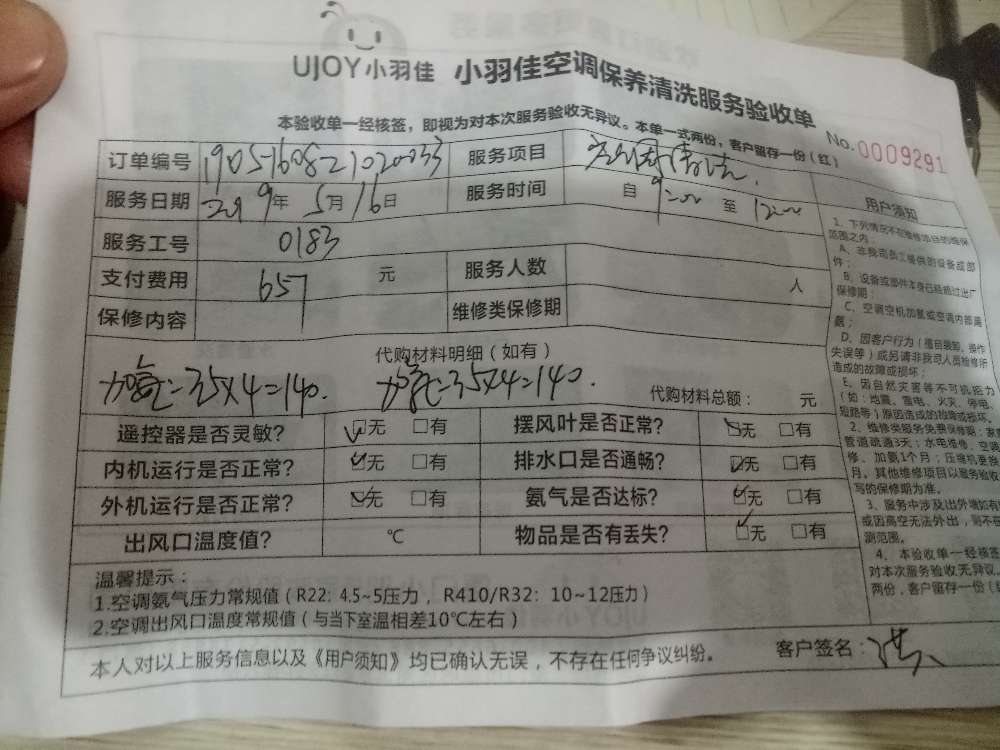 UJOY小羽佳 小羽佳空调保养清洗服务验收单
本验收单一经核签，即视为对本次服务验收无异议。本单一式两份，客户留存一份（红）
No.0009291
订单编号 1905160821020033 服务项目 空调清洗
服务日期 2019年5月16日 服务时间 自9:00至12:00
服务工号 0183
支付费用 657元 服务人数 人
保修内容 维修类保修期
代购材料明细（如有）
加氨=35×4=140. 加氨=35×4=140.
代购材料总额： 元
遥控器是否灵敏？ ☑无 □有 摆风叶是否正常？ ☑无 □有
内机运行是否正常？ ☑无 □有 排水口是否通畅？ ☑无 □有
外机运行是否正常？ ☑无 □有 氨气是否达标？ ☑无 □有
出风口温度值？ ℃ 物品是否有丢失？ ☑无 □有
温馨提示：
1.空调氨气压力常规值（R22：4.5~5压力，R410/R32：10~12压力）
2.空调出风口温度常规值（与当下室温相差10℃左右）
本人对以上服务信息以及《用户须知》均已确认无误，不存在任何争议纠纷。
客户签名：洪
用户须知
1、下列情况不在维修项目的质保
范围之内：
A、非我司员工提供的设备或部
件；
B、设备或部件本身已经超过出厂
保修期；
C、空调空机加氨或空调内部漏
氨；
D、因客户行为（擅自装卸、操作
失误等）或另请非我司人员检修所
造成的故障或损坏；
E、因自然灾害等不可机抗力
（如：地震、雷电、火灾、停电、
短路等）原因造成的故障或损坏。
2、维修类服务免费保修期：家
管道疏通3天；水电维修、空调
修、加氨1个月；压缩机更换
月。其他维修项目以服务验收
写的保修期为准。
3、服务中涉及出外墙如有
或因高空无法外出，则不在
测范围。
4、本验收单一经核签
对本次服务验收无异议。
两份，客户留存一份（